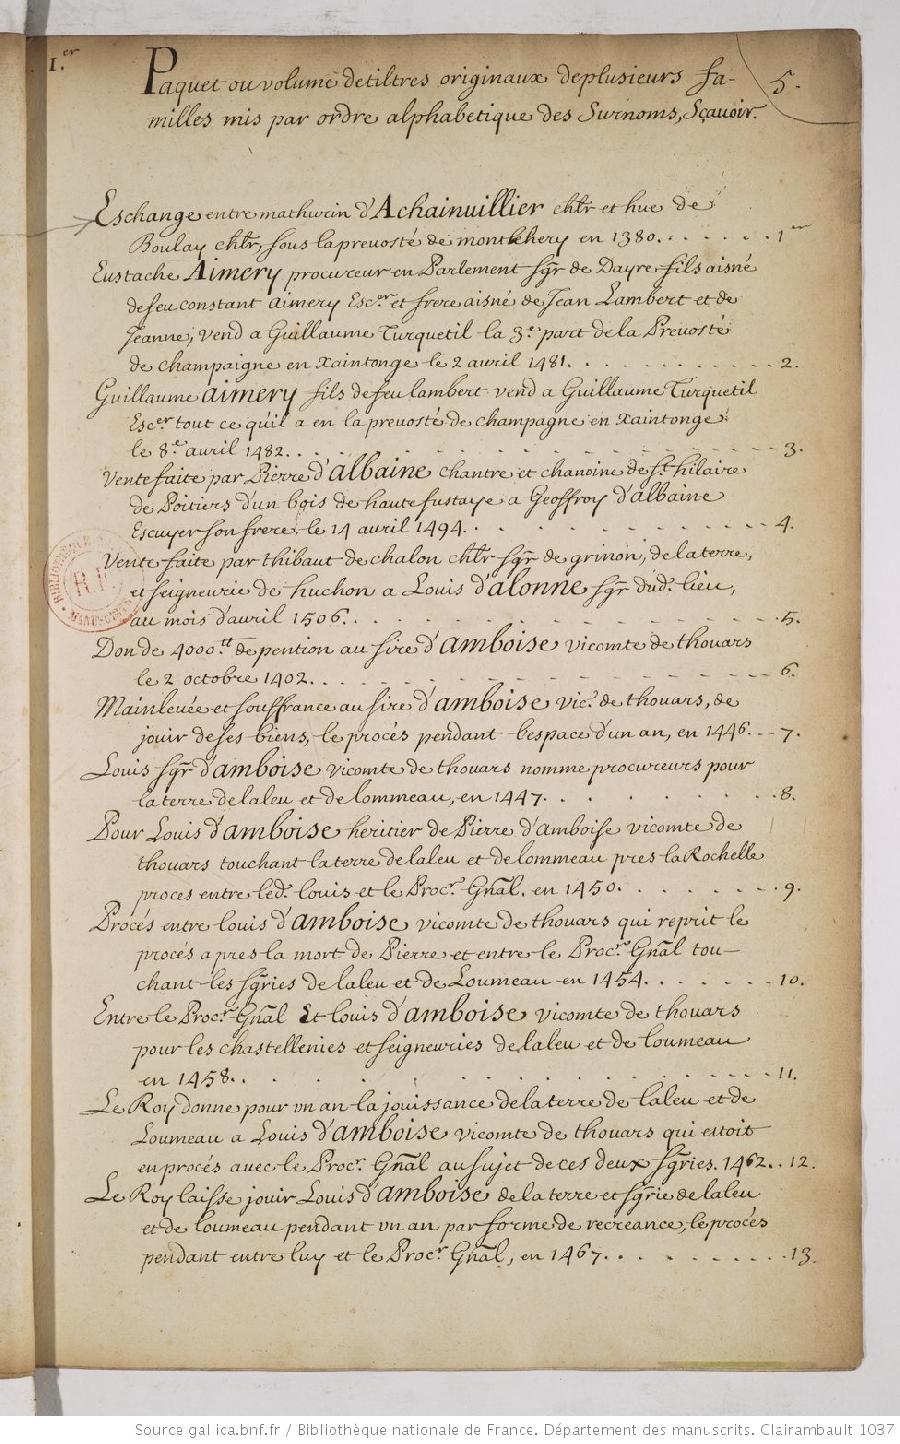 1.er
Paquet ou volume de tiltres originaux de plusieurs fa-
5.
milles mis par ordre alphabetique des Surnoms, Sçavoir.
Eschange entre mathurin d'Achainvillier chlr et hue de
Boulay chlr, sous la prevosté de montlehery en 1380. . . . . . . 1er
Eustache Aimery procureur en Parlement sgr de Dayre fils aisné
de feu constant Aimery Escer et frere aisné de Jean Lambert et de
Jeanne, vend a Guillaume Turquetil la 3e part de la Prevosté
de champaigne en Xaintonge le 2 avril 1481. . . . . . . . . . 2.
Guillaume aimery fils de feu lambert vend a Guillaume Turquetil
Escer tout ce qu'il a en la prevosté de champagne en Xaintonge
le 8e avril 1482. . . . . . . . . . . . . . . . 3.
Vente faite par Pierre d'albaine chantre et chanoine de St hilaire
de Poitiers d'un bois de haute fustaye a Geoffroy d'albaine
Escuyer son frere, le 14 avril 1494. . . . . . . . . . . 4.
Vente faite par thibaut de chalon chlr sgr de grinon, de la terre,
et seigneurie de huchon a Louis d'alonne sgr dud. lieu,
au mois d'avril 1506. . . . . . . . . . . . . . 5.
Don de 4000.tt de pention au sire d'amboise vicomte de thouars
le 2 octobre 1402. . . . . . . . . . . . . . . 6.
Mainlevée et souffrance au sire d'amboise vic.e de thouars, de
jouir de ses biens, le procés pendant l'espace d'un an, en 1446. . . 7.
Louis sgr d'amboise vicomte de thouars nomme procureurs pour
la terre de laleu et de lommeau, en 1447. . . . . . . . 8.
Pour Louis d'amboise heritier de Pierre d'amboise vicomte de
thouars touchant la terre de laleu et de lommeau pres la Rochelle
proces entre led. louis et le Procr Gnãl. en 1450. . . . . . . 9.
Procés entre louis d'amboise vicomte de thouars qui reprit le
procés apres la mort de Pierre et entre le Procr Gnãl tou-
chant les sgries de laleu et de Loumeau en 1454. . . . . . 10.
Entre le Procr Gnãl Et louis d'amboise vicomte de thouars
pour les chastellenies et seigneuries de laleu et de loumeau
en 1458. . . . . . . . . . . . . . . . 11.
Le Roy donne pour vn an la jouissance de la terre de laleu et de
Loumeau a Louis d'amboise vicomte de thouars qui estoit
en procés avec le Procr Gnãl au sujet de ces deux sgries. 1462. . 12.
Le Roy laisse jouir Louis d'amboise de la terre et sgrie de laleu
et de loumeau pendant vn an par forme de recreance, le procés
pendant entre luy et le Procr Gnãl, en 1467. . . . . . . . . 13.
BIBLIOTHEQUE
R.F.
MANUSCRITS
Source gallica.bnf.fr / Bibliothèque nationale de France. Département des manuscrits. Clairambault 1037